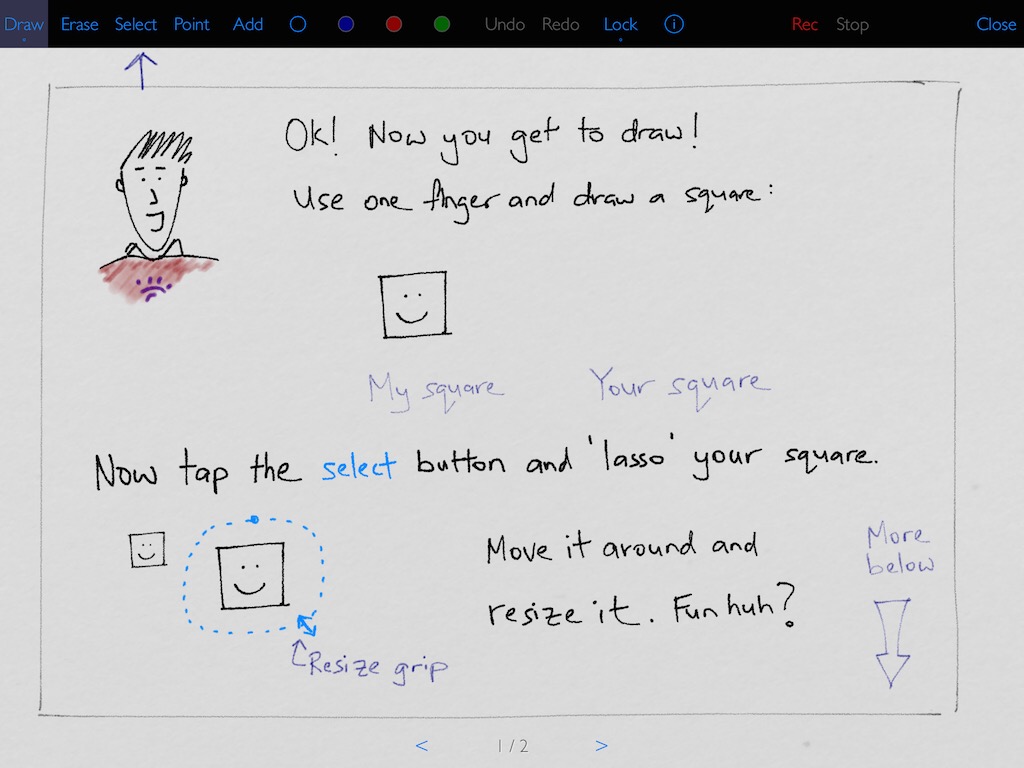 Draw Erase Select Point Add Undo Redo Lock i Rec Stop Close
Ok! Now you get to draw!
Use one finger and draw a square:
My square Your square
Now tap the select button and 'lasso' your square.
Move it around and
resize it. Fun huh?
More
below
Resize grip
< 1 / 2 >